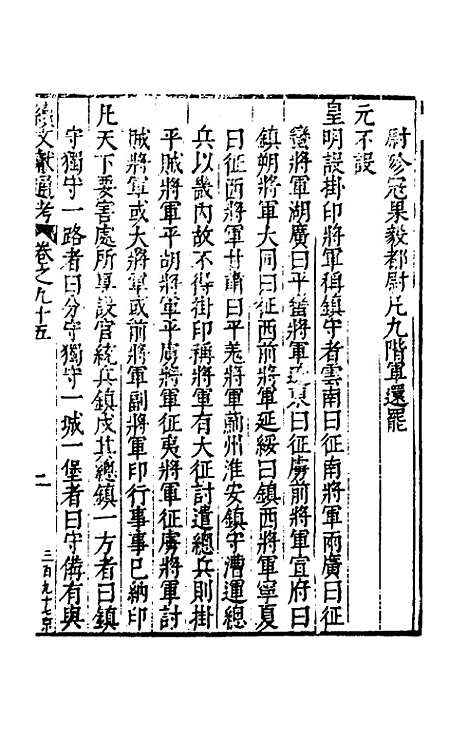 尉殄冠果毅都尉凡九階軍還罷
元不設
皇明設掛印將軍稱鎮守者雲南曰征南將軍兩廣曰征
蠻將軍湖廣曰平蠻將軍遼東曰征虜前將軍宣府曰
鎮朔將軍大同曰征西前將軍延綏曰鎮西將軍寧夏
曰征西將軍甘肅曰平羗將軍薊州淮安鎮守漕運總
兵以畿內故不得掛印稱將軍有大征討遣總兵則掛
平賊將軍平胡將軍平虜將軍征夷將軍征虜將軍討
賊將軍或大將軍或前將軍副將軍印行事事已納印
凡天下要害處所專設官統兵鎮戍其總鎮一方者曰鎮
守獨守一路者曰分守獨守一城一堡者曰守備有與
續文獻通考 卷之九十五 二 三百九十七京